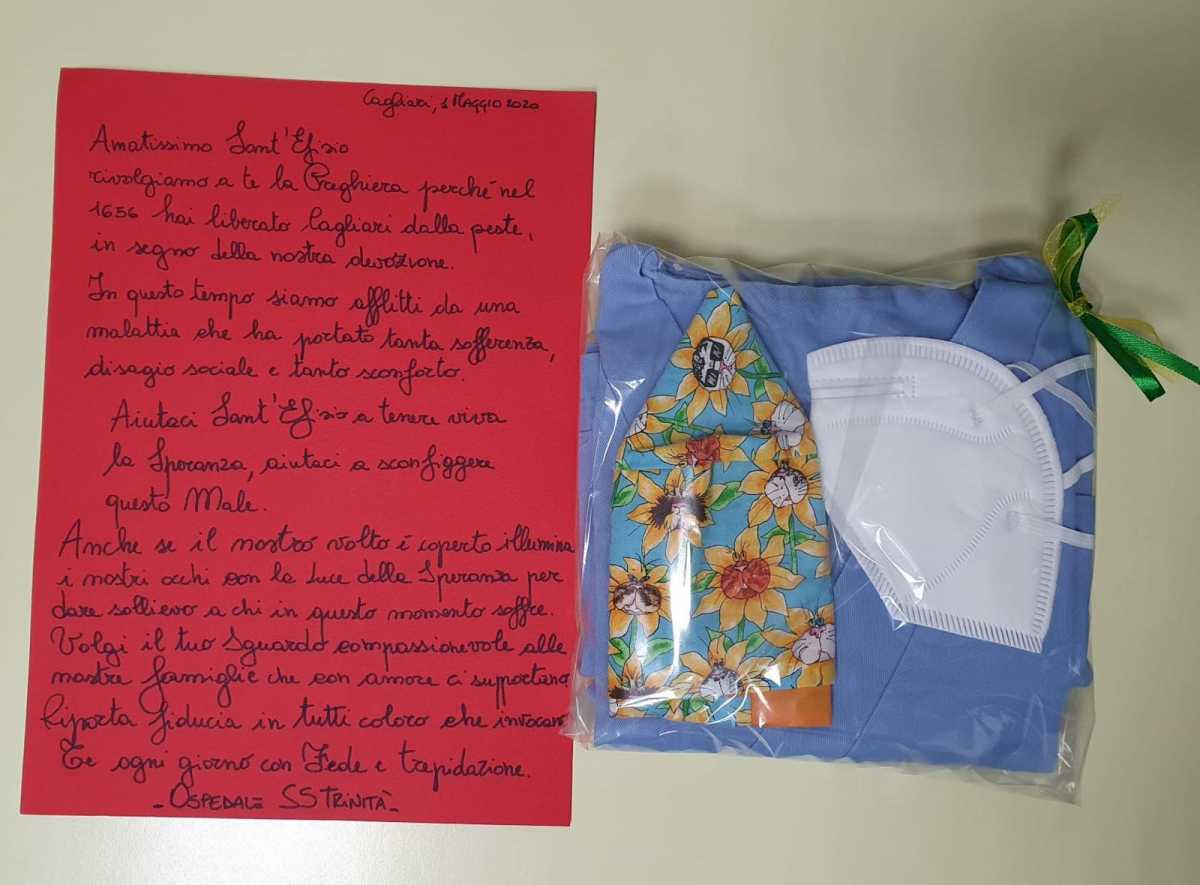 Cagliari, 1 MAGGIO 2020
Amatissimo Sant'Efisio
rivolgiamo a te la Preghiera perché nel
1656 hai liberato Cagliari dalla peste,
in segno della nostra devozione.
In questo tempo siamo afflitti da una
malattia che ha portato tanta sofferenza,
disagio sociale e tanto sconforto.
Aiutaci Sant'Efisio a tenere viva
la Speranza, aiutaci a sconfiggere
questo Male.
Anche se il nostro volto è coperto illumina
i nostri occhi con la Luce della Speranza per
dare sollievo a chi in questo momento soffre.
Volgi il tuo Sguardo compassionevole alle
nostre famiglie che con amore ci suportano
Riporta fiducia in tutti coloro che invocano
Te ogni giorno con Fede e trepidazione.
- OSPEDALE SS TRINITÀ -